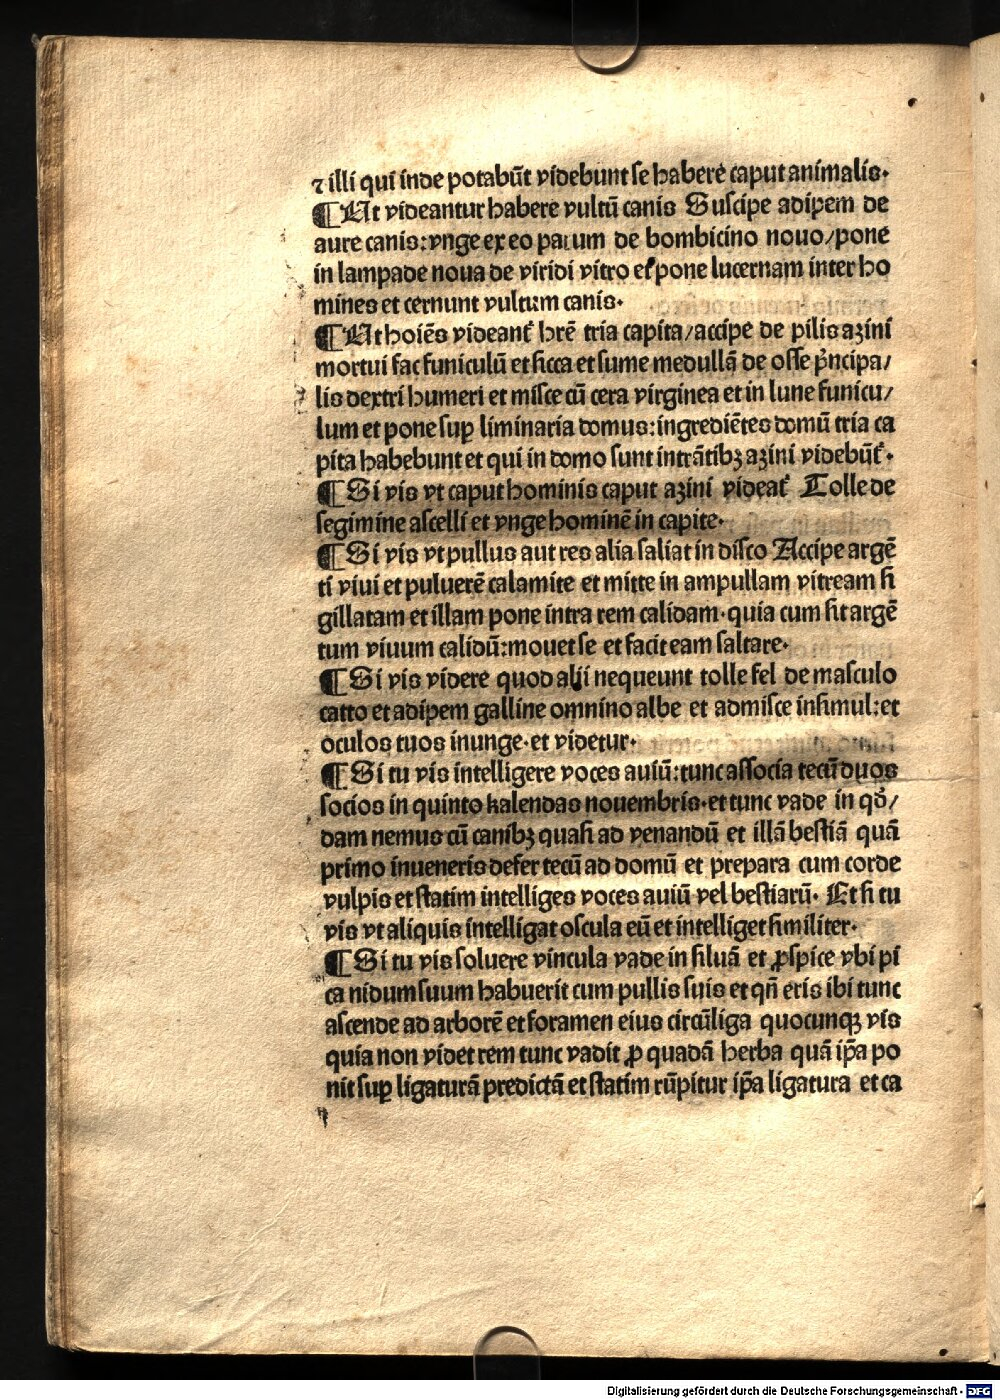 ⁊ illi qui inde potabūt videbunt se habere caput animalis·
¶ Ut videantur habere vultū canis Suscipe adipem de
aure canis: vnge ex eo paıum de bombicino nouo/pone
in lampade noua de viridi vitro et pone lucernam inter ho
mines et cernunt vultum canis·
¶ Ut hoiēs videant᷑ hr̄e tria capita/accipe de pilis azini
mortui fac funiculū et sicca et sume medullā de osse pͥncipa/
lis dextri humeri et misce cū cera virginea et in lune funicu/
lum et pone suꝑ liminaria domus: ingrediētes domū tria ca
pita habebunt et qui in domo sunt intrātibꝫ azini videbūt᷑·
¶ Si vis vt caput hominis caput azini videat᷑ Tolle de
segimine aselli et vnge hominē in capite·
¶ Si vis vt pullus aut res alia saliat in disco Accipe argē
ti viui et puluerē calamite et mitte in ampullam vitream si
gillatam et illam pone intra rem calidam· quia cum sit argē
tum viuum calidū: mouet se et facit eam saltare·
¶ Si vis videre quod alij nequeunt tolle fel de masculo
catto et adipem galline omnino albe et admisce insimul: et
oculos tuos inunge· et videtur·
¶ Si tu vis intelligere voces auiū: tunc associa tecū duos
socios in quinto kalendas nouembris· et tunc vade in qd̓/
dam nemus cū canibꝫ quasi ad venandū et illā bestiā quā
primo inueneris defer tecū ad domū et prepara cum corde
vulpis et statim intelliges voces auiū vel bestiarū· Et si tu
vis vt aliquis intelligat oscula eū et intelliget similiter·
¶ Si tu vis soluere vincula vade in siluā et ꝓspice vbi pi
ca nidum suum habuerit cum pullis suis et qn̄ eris ibi tunc
ascende ad arborē et foramen eius circūliga quocunqꝫ vis
quia non videt rem tunc vadit ꝓ quadā herba quā ip̄a po
nit suꝑ ligaturā predictā et statim rūpitur ip̄a ligatura et ca
Digitalisierung gefördert durch die Deutsche Forschungsgemeinschaft - DFG